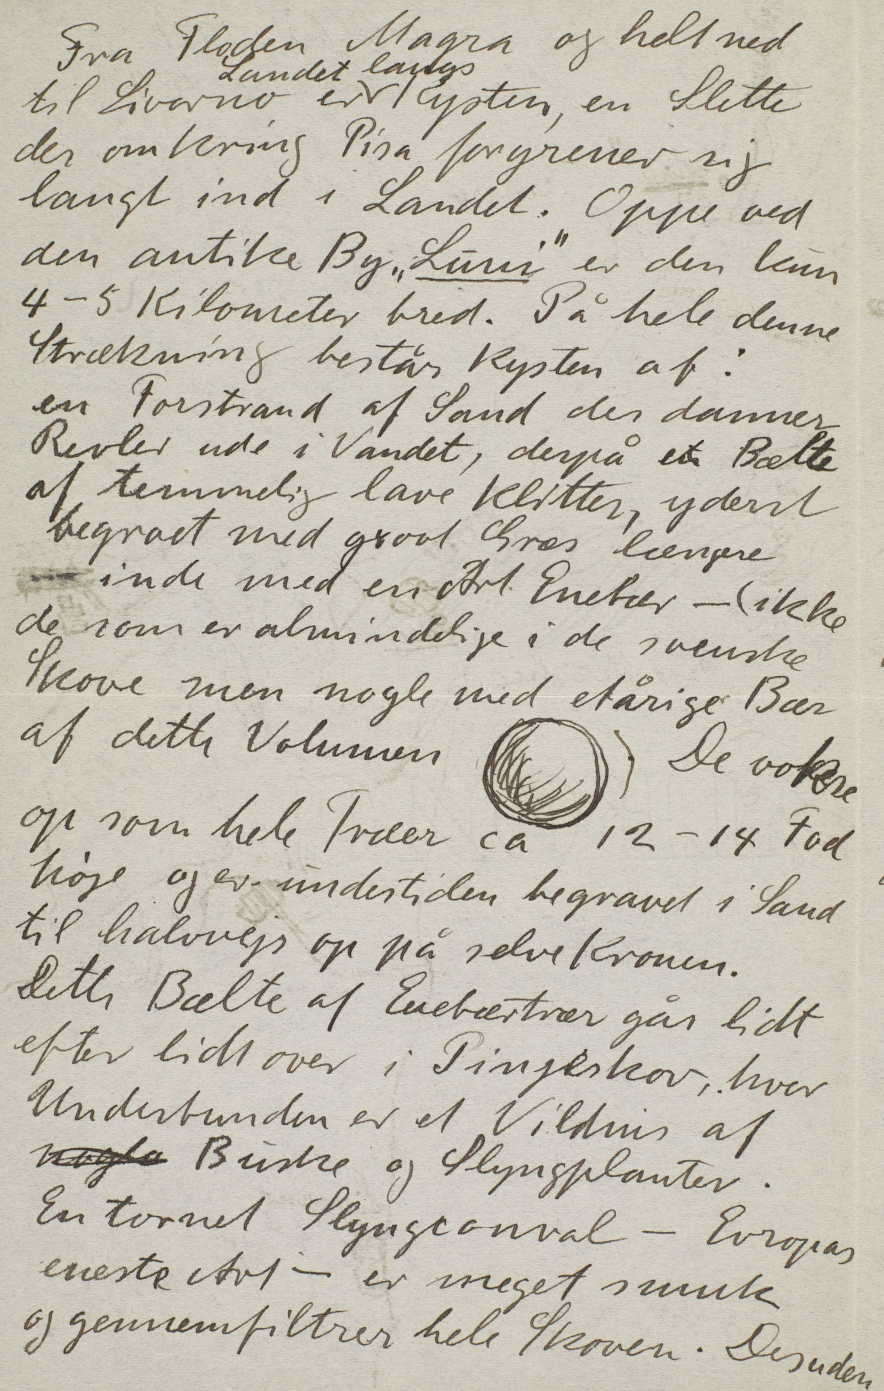 Fra Floden Magra og helt ned
Landet langs
til Livorno er Kysten, en Slette
der omkring Pisa forgrener sig
langt ind i Landet. Oppe ved
den antike By „Luni” er den kun
4-5 Kilometer bred. På hele denne
Strækning består Kysten af:
en Forstrand af Sand der danner
Revler ude i Vandet, derpå et Bælte
af temmelig lave Klitter, yderst
begroet med groot Græs længere
inde med en Art Enebær — (ikke
de som er almindelige i de svenske
Skove men nogle med etårige Bær
af dette Volumen ) De vokse
op som hele Træer ca 12-14 Fod
høje og er undertiden begravet i Sand
til halvvejs op på selve Kronen.
Dette Bælte af Enebærtrær går lidt
efter lidt over i Pinjeskov, hvor
Underbunden er et Vildnis af
nogle Buske og Slyngplanter.
En tornet Slyngconval — Evropas
eneste Art — er meget smuk
og gennemfiltrer hele Skoven. Desuden